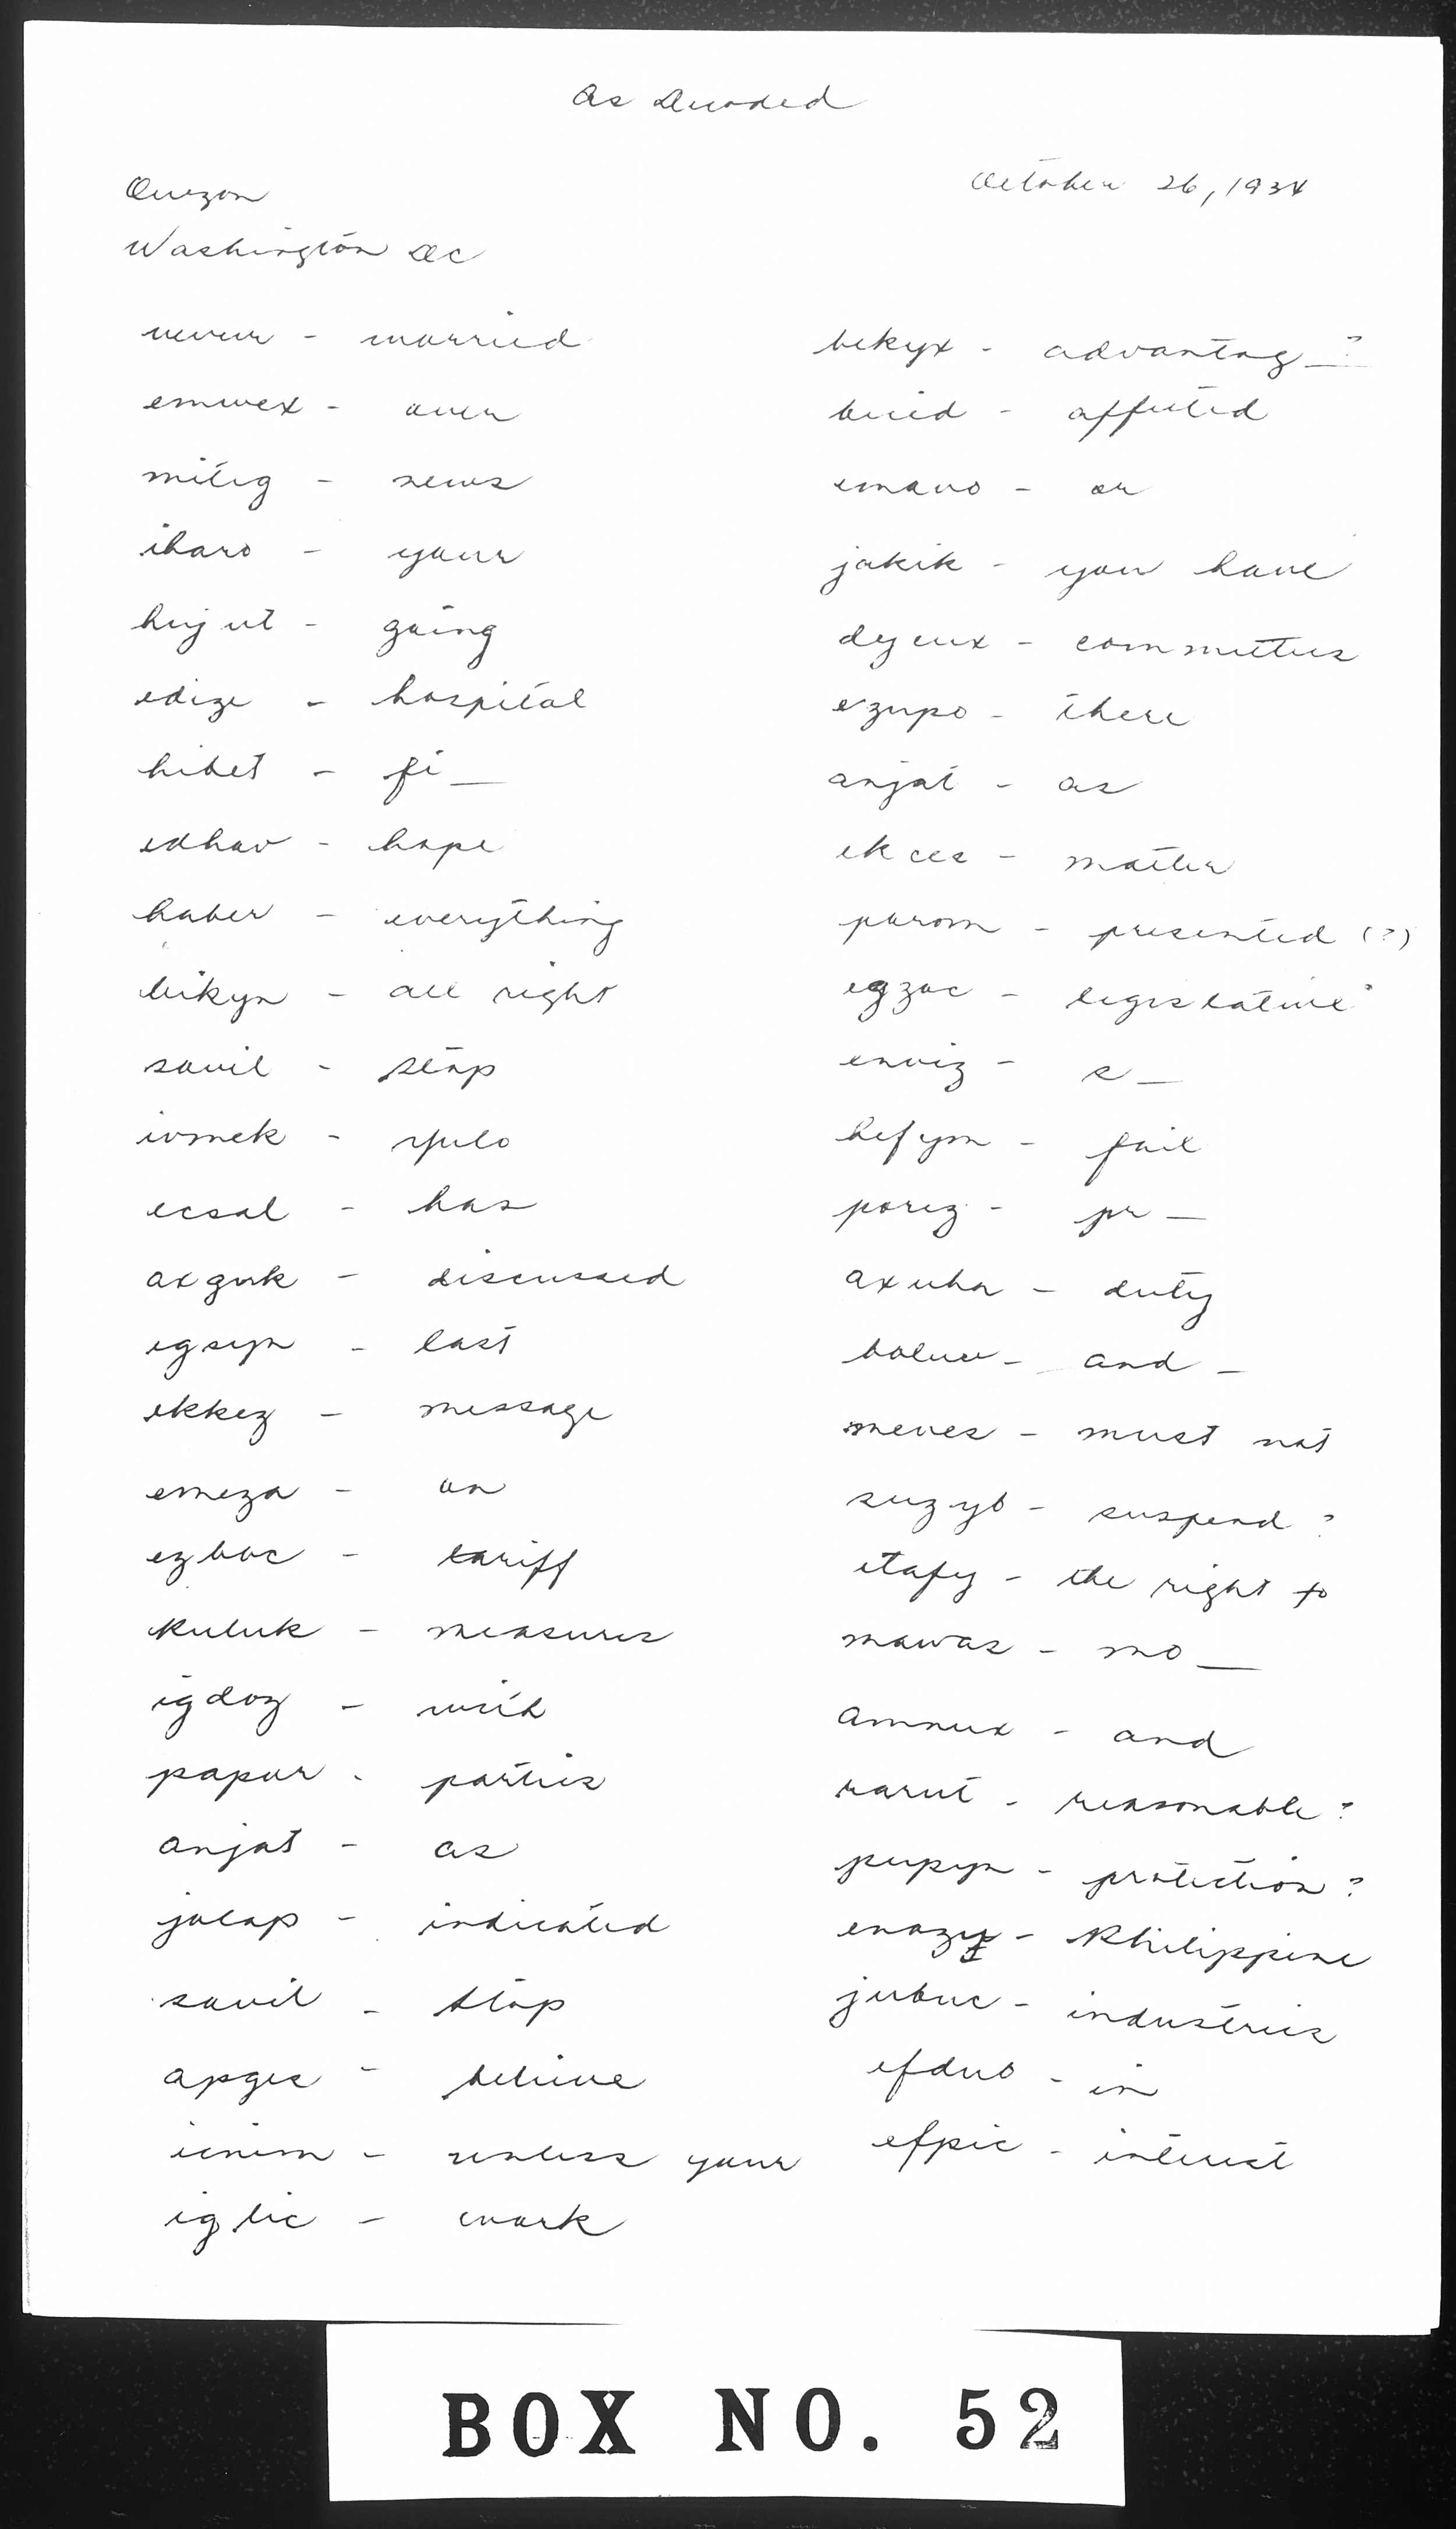 As Decoded
October 26, 1934
Quezon
Washington DC
worried
emwex - over
miteg - news
ibaro - your
hujut - going
edize - hospital
hibet - fi_
edhav - hope
haber - everything
bikyn - all right
savil - stop
ivmek - Yulo
ecsal - has
axguk - discussed
egsyn - last
ekkez - message
emeza - on
ezboc - tariff
kuluk - measures
igdoz - with
papur - parties
anjat - as
jalap - indicated
savil - stop
apges - believe
icnim - unless your
iglic - work
bekyx - advantag_?
affected
emavo - or
jakik - you have
dyeux - committees
ezupo - there
anjat - as
ekces - matter
purom - presented (?)
egzac - legislative
enviz - s_
hefym - fail
porez - pr_
axuha - duty
and _
meves - must not
suzyb - suspend ?
etafy - the right to
mawas - mo_
amnux - and
rarut - reasonable ?
pupyn - protection ?
enazy - Philippine
jubuc - industries
efduo - in
efpic - interest
BOX NO. 52